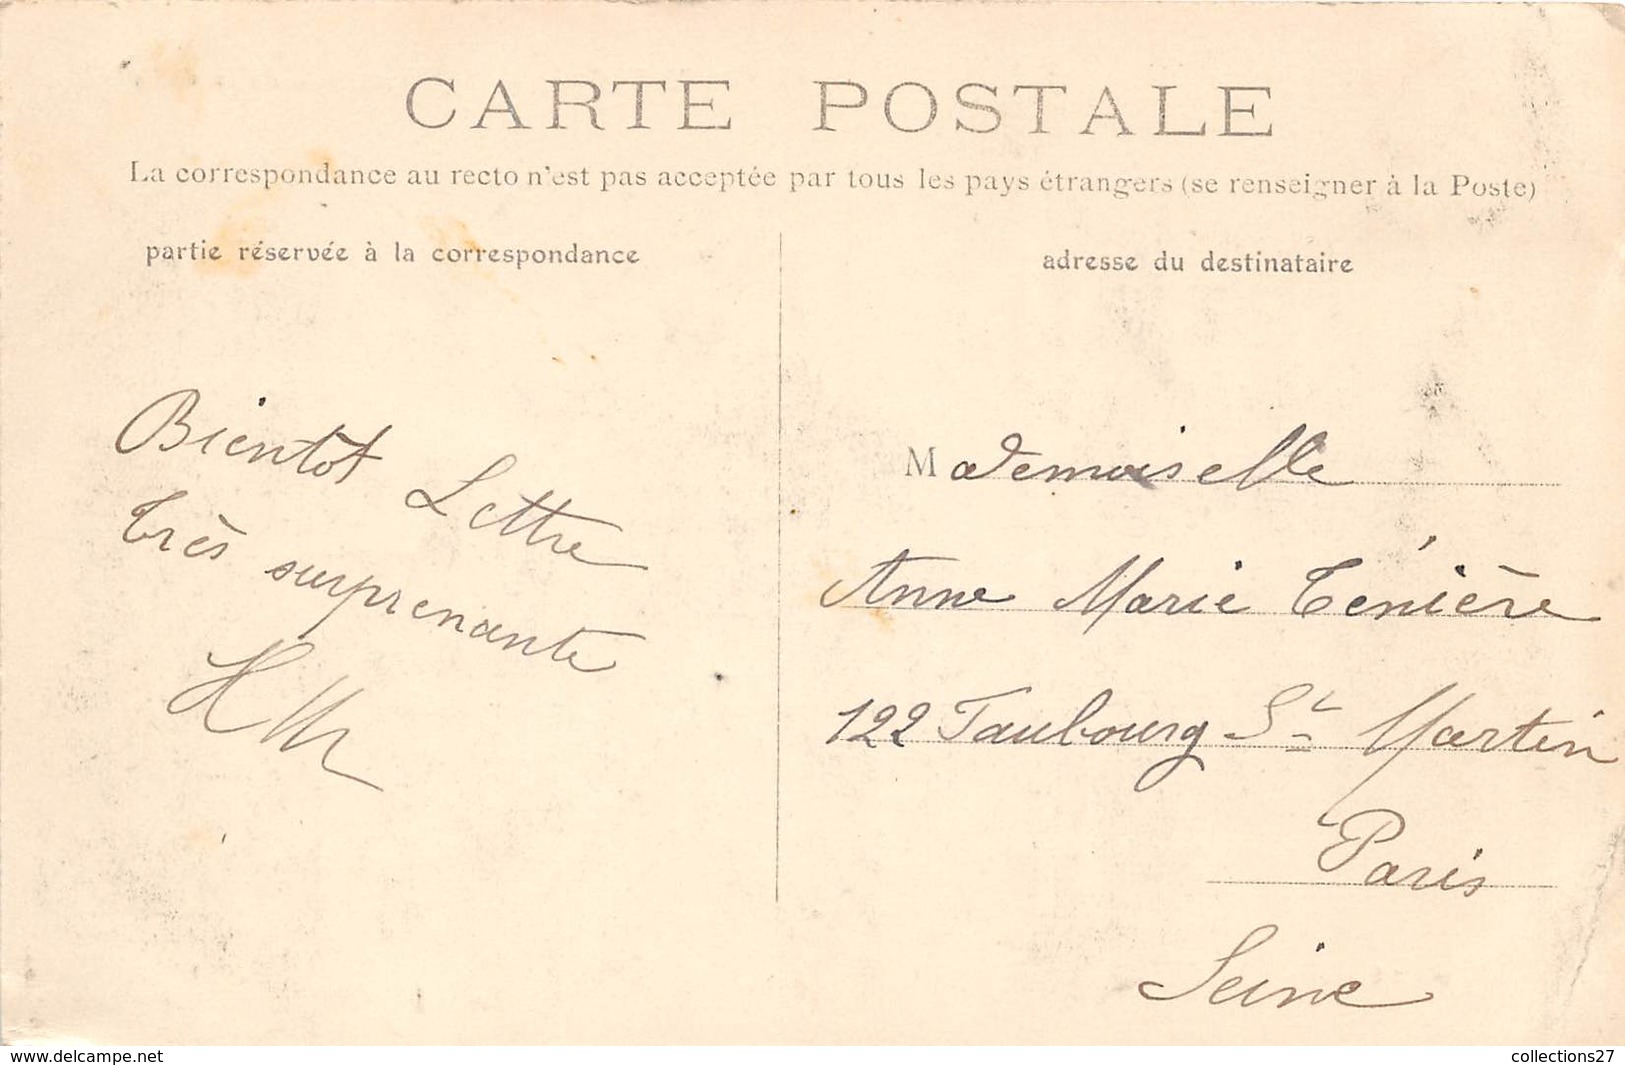 CARTE POSTALE
La correspondance au recto n'est pas acceptée par tous les pays étrangers (se renseigner à la Poste)
partie réservée à la correspondance
adresse du destinataire
Bientot Lettre
Très surprenante
Mademoiselle
Anne Marie Ténière
122 Faubourg St Martin
Paris
Seine
www.delcampe.net
collections27